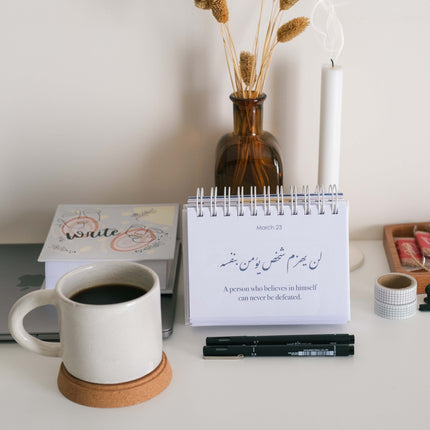 write
March 23
لن يهزم شخص يؤمن بنفسه
A person who believes in himself
can never be defeated.